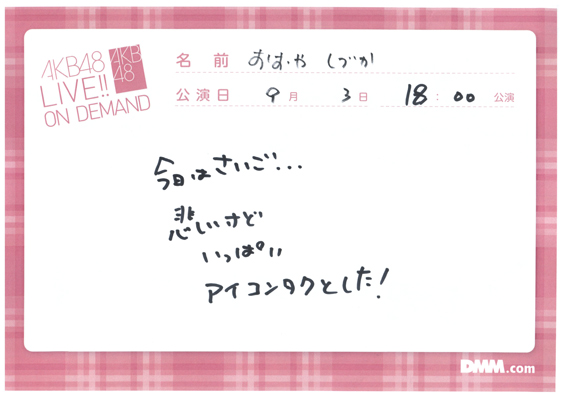 AKB48
LIVE!!
ON DEMAND
AKB
48
名前 おおや しづか
公演日 9月 3日 18:00 公演
今日はさいご…
悲しいけど
いっぱい
アイコンタクとした!
DMM.com